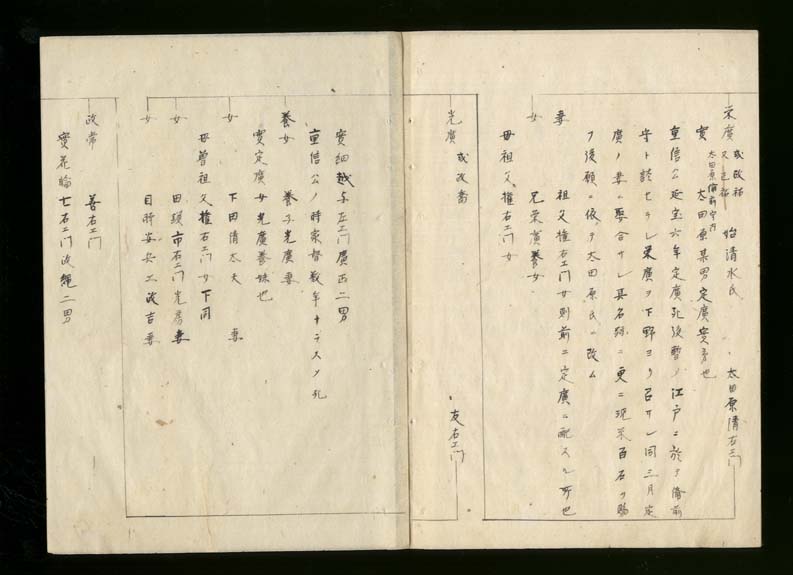 栄廣 或改祐 又之祐 始清水氏 太田原清右エ門
實 太田原備前守 内 太田原某男定廣實弟也
重信公延宝六年定廣死後 江戸ニ於テ備前
守ト談セラレ栄廣ヲ下野ヨリ召サレ同三月定
廣ノ妻ニ娶合サレ其名跡ニ更ニ現米百石ヲ賜
フ後願ニ依テ太田原氏ニ改ム
妻 祖父権右エ門女則前ニ定廣ニ配スル所也
女 兄栄廣養女
母祖父権右エ門女
光廣 或改
友右エ門
實細越与左エ門廣正二男
重信公ノ時家督数年ナラスシテ死
養女 養子光廣妻
實定廣女光廣養妹也
女 下田清太夫 妻
母曽祖父権右エ門女下同
女 田頭市右エ門光房妻
女 目時安兵エ政吉妻
政常 善右エ門
實花輪七右エ門政縄二男